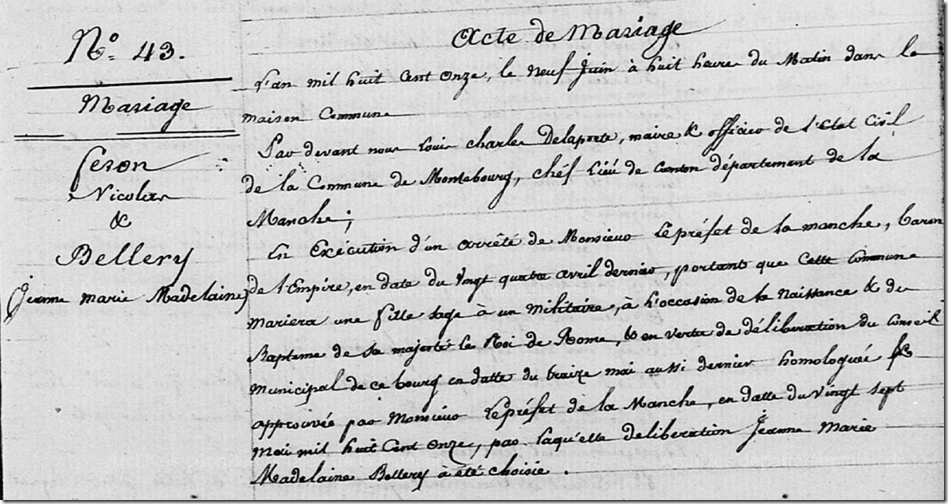 N° 43.
Mariage
Nicolas
&
Bellery
Jeanne Marie Madelaine
Acte de Mariage
L'an mil huit Cent Onze, le Neuf Juin à huit heures du Matin dans la
maison Commune
Par devant nous Louis Charles Delaporte, maire & officier de l'Etat Civil
de la Commune de Montebourg, chéf Liéu de Canton département de la
Manche;
En Exécution d'un arrêté de Monsieur Le préfet de la manche, baron
de l'Empire, en date du Vingt quatre avril dernier, portant que Cette Commune
Mariera une fille sage à un militaire, à l'occasion de la Naissance & du
Baptême de sa majesté le Roi de Rome, & en vertu de délibération du Conseil
municipal de ce bourg en datte du traize mai aussi dernier homologuée &
approuvée par Monsieur Le préfet de la Manche, en datte du vingt sept
Mai mil huit Cent onze, par laqu'elle deliberation Jeanne Marie
Madelaine Bellery a été choisie.